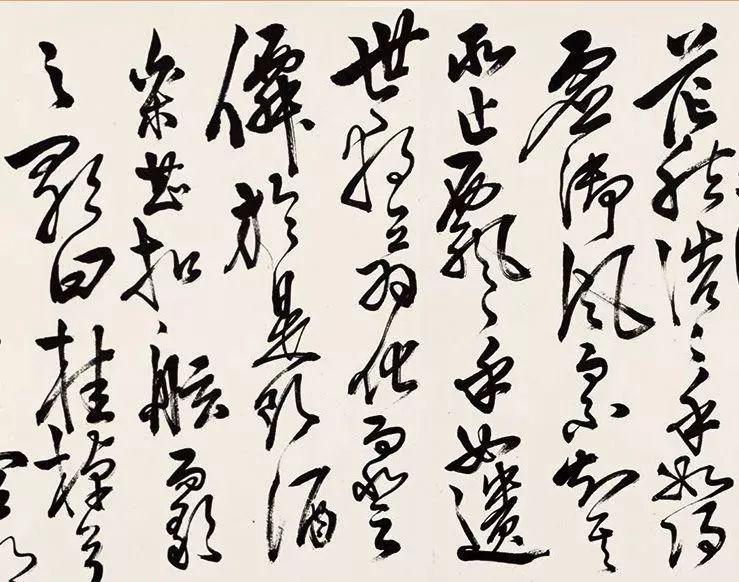 茫然浩〻乎如馮
虛御風而不知其
所止飄〻乎如遺
世獨立羽化而登
僊於是飲酒
樂甚扣舷而歌
之歌曰桂棹兮